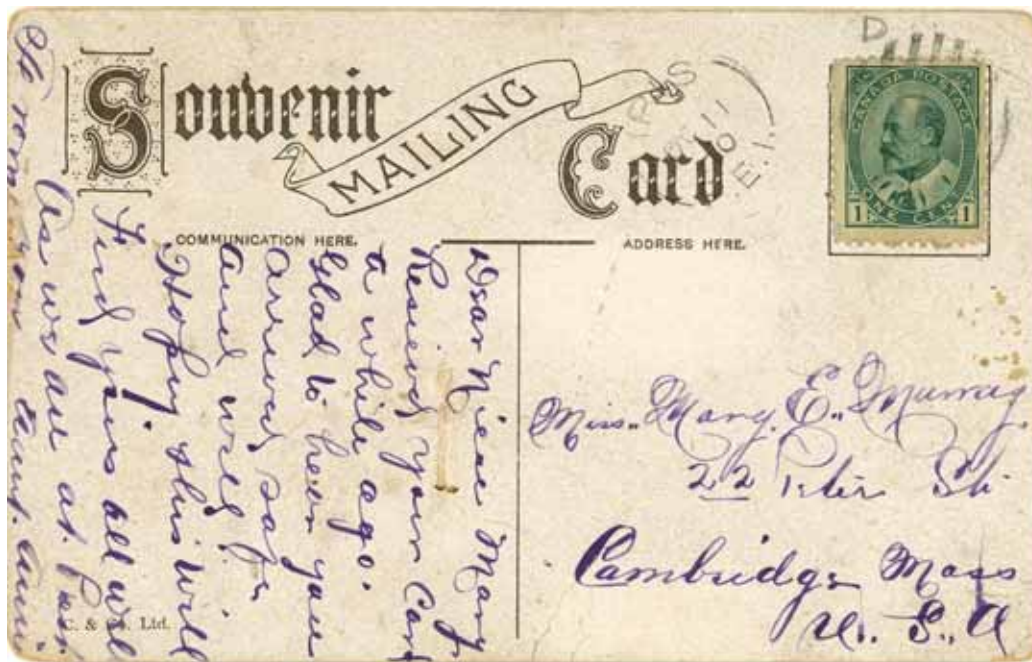 Souvenir
MAILING
Card
COMMUNICATION HERE.
ADDRESS HERE.
D
11
E.I.
CANADA POSTAGE
ONE CENT
1 1
Dear Niece Mary
Received your Card
a while ago.
Glad to hear you
arrived safe
and well.
Hoping this will
Find yous all well
As we are at
from your Aunt. Annie
Miss. Mary. E. Murray.
22 Peter St.
Cambridge Mass
U. S. A
& Co. Ltd.